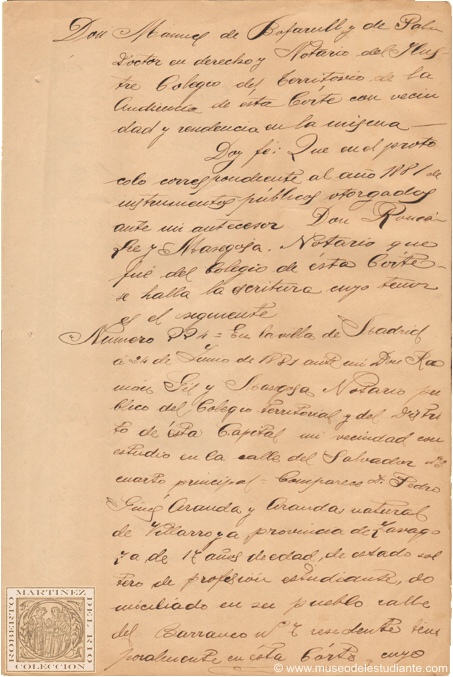 Don Manuel de Bofarull y de Palau
Doctor en derecho y Notario del Ilus
tre Colegio del territorio de la
Audiencia de ésta Córte con vecin
dad y residencia en la misma
Doy fé: Que en el proto
colo correspondiente al año 1881 de
instrumentos públicos otorgados
ante mi antecesor Don Ramón
y Masegosa. Notario que
fué del Colegio de ésta Córte
se halla la escritura cuyo tenor
es el siguiente
Número = En la villa de Madrid
á 24 de Junio de 1881 ante mi Don Ra
món Gil y Masegosa Notario pu
blico del Colegio territorial y del Distri
to de ésta Capital mi vecindad con
estudio en la calle del Salvador
cuarto principal = Comparece Dn Pedro
Ginés Aranda y Aranda natural
de Villarroya provincia de Zarago
za de años de edad, de estado sol
tero de profesión estudiante, do
miciliado en su pueblo calle
del Barranco nº 7 residente tem
poralmente en esta Córte cuyo
ROBERTO MARTINEZ DEL RIO
COLECCION
© www.museodelestudiante.com